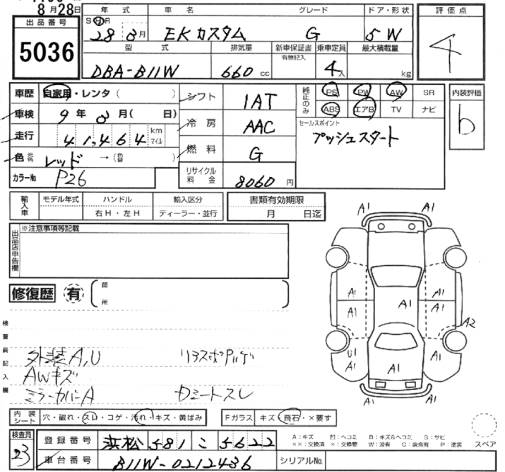 8月28日
出品番号
5036
年式 車名 グレード ドア・形状
SH 28年8月 EKカスタム G 5W
型式 排気量 新車保証書 有物記入 乗車定員 最大積載量
DBA-B11W 660cc 4人 kg
評価点
4
車歴 自家用・レンタ( )
車検 9年8月( 日)
走行 41,464 km マイル
色 レッド →(
カラーNo P26
シフト 1AT
冷房 AAC
燃料 G
リサイクル料金 8060円
純正のみ PS PW AW SR
ABS エアB TV ナビ
セールスポイント
プッシュスタート
内装評価
b
輸入車 モデル年式 ハンドル 輸入区分
右H・左H ディーラー・並行
書類有効期限
月 日迄
出品店申告欄 ※注意事項等記載
修復歴 有 箇所
検査員記入欄
外装A,U
AWキズ
ミラーカバーA
リヤスポ
カミートスレ
A1 A1
A1 A1
A1 A1 A1
A1 A2
U1 A1 A1
A1 A1
内装シート 穴・破れ・スレ・コゲ・汚れ・キズ・黄ばみ
Fガラス キズ・飛石・×要す
検査員
23
登録番号 浜松 581 こ 5622
車台番号 B11W-0212436 シリアルNo.
A:キズ U:ヘコミ B:キズ&ヘコミ S:サビ
XX:交換済 X:要交換 W:波 C:腐食 P:塗装
スペア